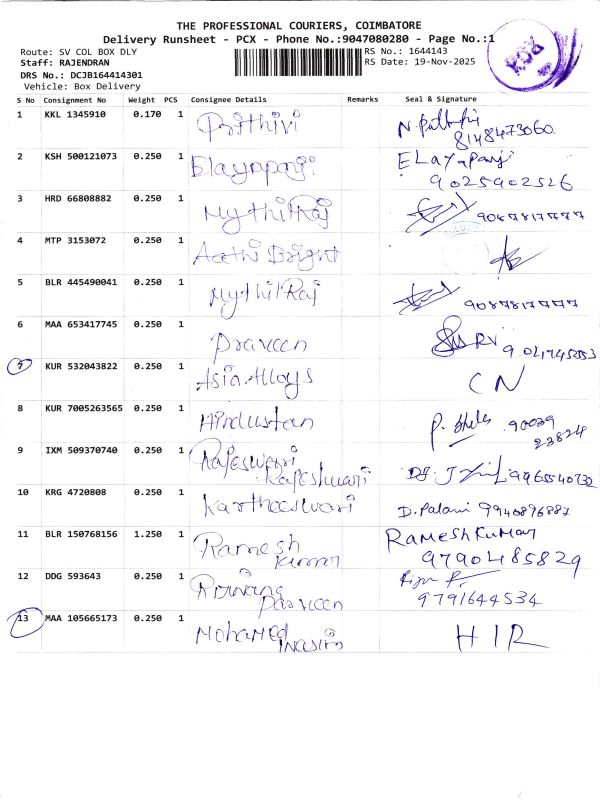 THE PROFESSIONAL COURIERS, COIMBATORE
Delivery Runsheet - PCX - Phone No.:9047080280 - Page No.:1
Route: SV COL BOX DLY RS No.: 1644143
Staff: RAJENDRAN RS Date: 19-Nov-2025
DRS No.: DCJB164414301
Vehicle: Box Delivery
S No Consignment No Weight PCS Consignee Details Remarks Seal & Signature
1 KKL 1345910 0.170 1 Prithivi
8148473060
2 KSH 500121073 0.250 1 Elayaparji ELayaParji
9025902526
3 HRD 66808882 0.250 1 MythilRaj 9087817777
4 MTP 3153072 0.250 1 Aathi Bright
5 BLR 445490041 0.250 1 MythilRaj 9087817777
6 MAA 653417745 0.250 1 Praveen
7 KUR 532043822 0.250 1 Asia Alloys CN
8 KUR 7005263565 0.250 1 Hindustan 90029
23824
9 IXM 509370740 0.250 1 Rajeswari
Rajeshwari 9965540732
10 KRG 4720808 0.250 1 Kartheeswari D. Palani 9940896887
11 BLR 150768156 1.250 1 Ramesh Kumar RAMESHKUMAR
9790485829
12 DDG 593643 0.250 1 Rizwana Parveen
9791644534
13 MAA 105665173 0.250 1 Mohamed HIR